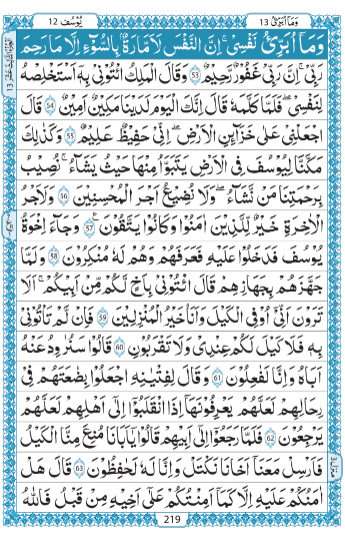 وَمَآ اُبَرِّئُ 13
يُوْسُف 12
وَمَآ اُبَرِّئُ نَفْسِىْ ۚ اِنَّ النَّفْسَ لَاَمَّارَةٌۢ بِالسُّوْٓءِ اِلَّا مَا رَحِمَ
رَبِّىْ ؕ اِنَّ رَبِّىْ غَفُوْرٌ رَّحِيْمٌ 53 وَقَالَ الْمَلِكُ ائْتُوْنِىْ بِهٖۤ اَسْتَخْلِصْهُ
لِنَفْسِىْ ۚ فَلَمَّا كَلَّمَهٗ قَالَ اِنَّكَ الْيَوْمَ لَدَيْنَا مَكِيْنٌ اَمِيْنٌ 54 قَالَ
اجْعَلْنِىْ عَلٰى خَزَآئِنِ الْاَرْضِ ۚ اِنِّىْ حَفِيْظٌ عَلِيْمٌ 55 وَكَذٰلِكَ
مَكَّنَّا لِيُوْسُفَ فِى الْاَرْضِ يَتَبَوَّاُ مِنْهَا حَيْثُ يَشَآءُ ؕ نُصِيْبُ
بِرَحْمَتِنَا مَنْ نَّشَآءُ وَلَا نُضِيْعُ اَجْرَ الْمُحْسِنِيْنَ 56 وَلَاَجْرُ
الْاٰخِرَةِ خَيْرٌ لِّلَّذِيْنَ اٰمَنُوْا وَكَانُوْا يَتَّقُوْنَ 57 وَجَآءَ اِخْوَةُ
يُوْسُفَ فَدَخَلُوْا عَلَيْهِ فَعَرَفَهُمْ وَهُمْ لَهٗ مُنْكِرُوْنَ 58 وَلَمَّا
جَهَّزَهُمْ بِجَهَازِهِمْ قَالَ ائْتُوْنِىْ بِاَخٍ لَّكُمْ مِّنْ اَبِيْكُمْ ۚ اَلَا
تَرَوْنَ اَنِّىْۤ اُوْفِى الْكَيْلَ وَاَنَا خَيْرُ الْمُنْزِلِيْنَ 59 فَاِنْ لَّمْ تَاْتُوْنِىْ
بِهٖ فَلَا كَيْلَ لَكُمْ عِنْدِىْ وَلَا تَقْرَبُوْنِ 60 قَالُوْا سَنُرَاوِدُ عَنْهُ
اَبَاهُ وَاِنَّا لَفٰعِلُوْنَ 61 وَقَالَ لِفِتْيٰنِهِ اجْعَلُوْا بِضَاعَتَهُمْ فِىْ
رِحَالِهِمْ لَعَلَّهُمْ يَعْرِفُوْنَهَاۤ اِذَا انْقَلَبُوْۤا اِلٰٓى اَهْلِهِمْ لَعَلَّهُمْ
يَرْجِعُوْنَ 62 فَلَمَّا رَجَعُوْۤا اِلٰٓى اَبِيْهِمْ قَالُوْا يٰۤاَبَانَا مُنِعَ مِنَّا الْكَيْلُ
فَاَرْسِلْ مَعَنَاۤ اَخَانَا نَكْتَلْ وَاِنَّا لَهٗ لَحٰفِظُوْنَ 63 قَالَ هَلْ
اٰمَنُكُمْ عَلَيْهِ اِلَّا كَمَاۤ اَمِنْتُكُمْ عَلٰٓى اَخِيْهِ مِنْ قَبْلُ ؕ فَاللّٰهُ
219